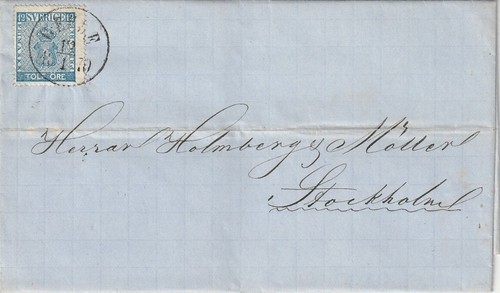 12 SVERIGE 12
TOLF ÖRE
GEFLE
12
1
70
Herrar Holmberg & Möller
Stockholm